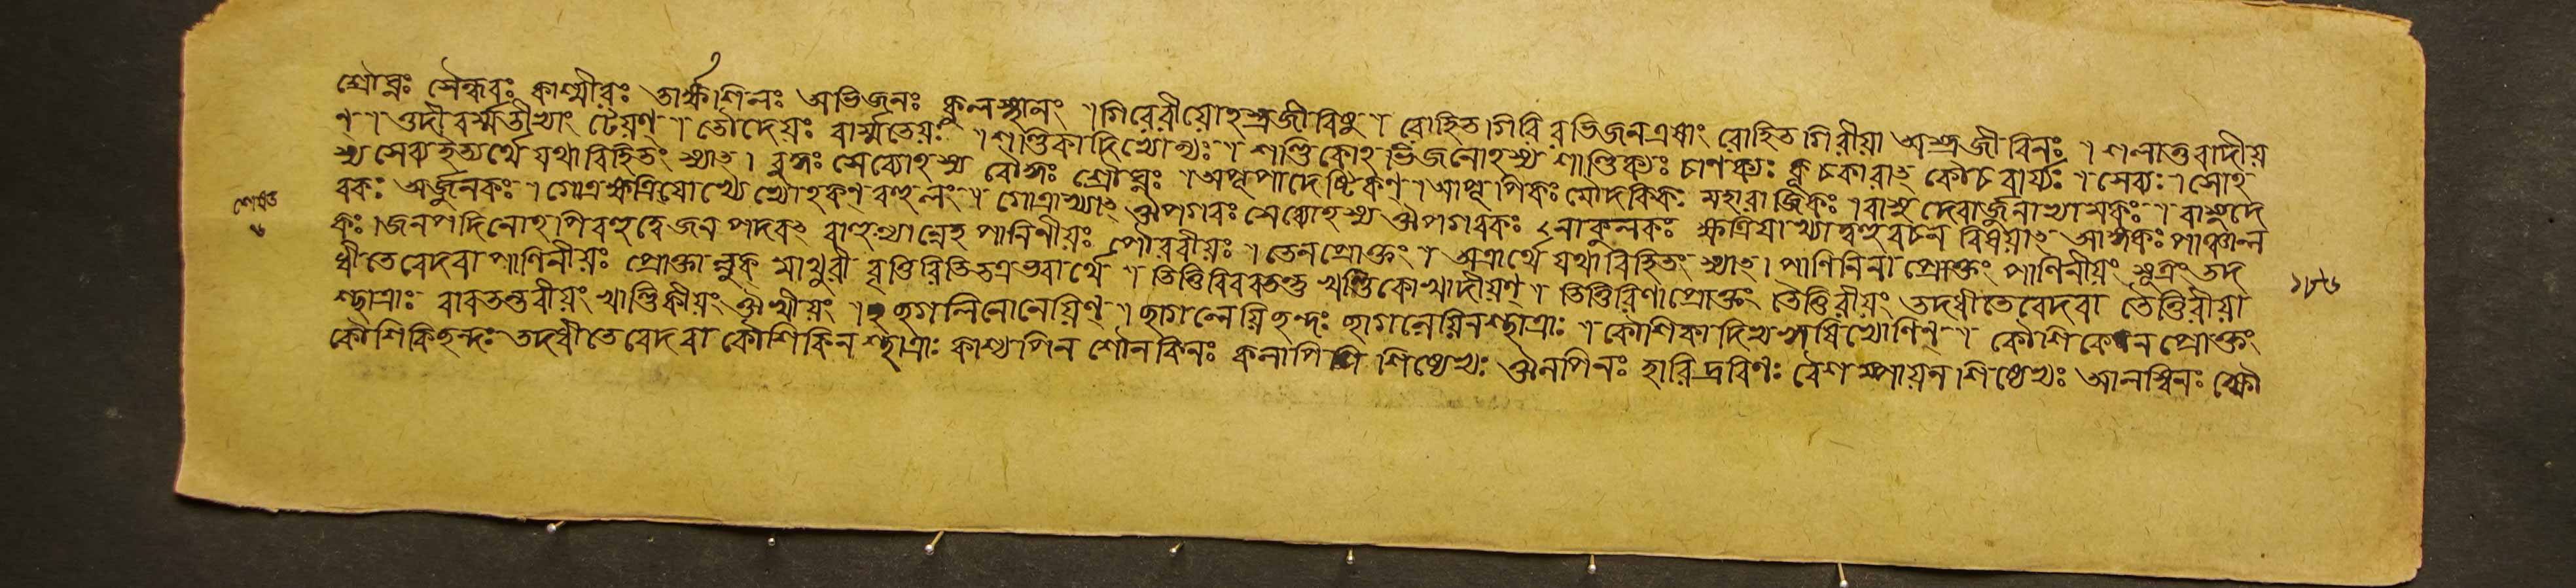 শ্রৌঘ্নঃ সৈন্ধবঃ কাশ্মীরঃ তাক্ষশিলঃ অভিজনঃ কুলস্থানং । গিরেরীয়োহস্ত্রজীবিষু । রোহিতগিরিরভিজনএষাং রোহিতগিরীয়া অস্ত্রজীবিনঃ । শলাতুরাদীয়
ণ্ । ওদীবর্ম্মতীভ্যাং টেয়ণ্ । তৌদেয়ঃ বার্ম্মতেয়ঃ । শণ্ডিকাদিভ্যোণ্যঃ । শণ্ডিকোহভিজনোহস্য শাণ্ডিক্যঃ চাণক্যঃ কুচকারাৎ কৌচবার্য্যঃ । সেব্যঃ । সোহ
স্য সেব্যইত্যর্থে যথাবিহিতং স্যাৎ । স্রুঘ্নঃ সেব্যোহস্য স্রৌঘ্নঃ শ্রৌঘ্নঃ । অপূপাদেষ্টিকণ্ । আপূপিকঃ মৌদকিকঃ মহারাজিকঃ । বাসুদেবার্জুনাভ্যামকঃ । বাসুদে
বকঃ অর্জুনকঃ । গোত্রক্ষত্রিয়াখ্যেভ্যোহকণ্ বহুলং । গোত্রাখ্যাৎ ঔপগবঃ সেব্যোহস্য ঔপগবকঃ নাকুলকঃ ক্ষত্রিয়াখ্যাদ্বহুবচন বিষয়াৎ আঙ্গকঃ পাঞ্চাল
কঃ । জনপদিনোহপিবহুত্বে জনপদবৎ বাহুল্যান্নেহ পাণিনীয়ঃ পৌরবীয়ঃ । তেনপ্রোক্তং । অত্রার্থে যথাবিহিতং স্যাৎ । পাণিনিনা প্রোক্তং পাণিনীয়ং সূত্রং তদ
ধীতে বেদবা পাণিনীয়ঃ প্রোক্তাল্লুক্ মাথুরী বৃত্তিরিতিতত্রভবার্থে । তিত্তিরিবরতন্তু খণ্ডিকোখাদীয়ণ্ । তিত্তিরিণাপ্রোক্তং তৈত্তিরীয়ং তদধীতেবেদবা তৈত্তিরীয়া
শ্ছাত্রাঃ বারতন্তবীয়ং খাণ্ডিকীয়ং ঔখীয়ং । ছগলিনোনেয়িণ্ । ছাগলেয়িছন্দঃ ছাগলেয়িনশ্ছাত্রাঃ । কৌশিকাদিভ্যঋষিভ্যোণিন্ । কৌশিকেন প্রোক্তং
কৌশিকিছন্দঃ তদধীতে বেদবা কৌশিকিন শ্ছাত্রাঃ কাশ্যপিন শৌনকিনঃ কলাপি শিষ্যেভ্যঃ ঔলপিনঃ হারিদ্রবিণঃ বৈশম্পায়ন শিষ্যেভ্যঃ আলম্বিনঃ
১৮৬